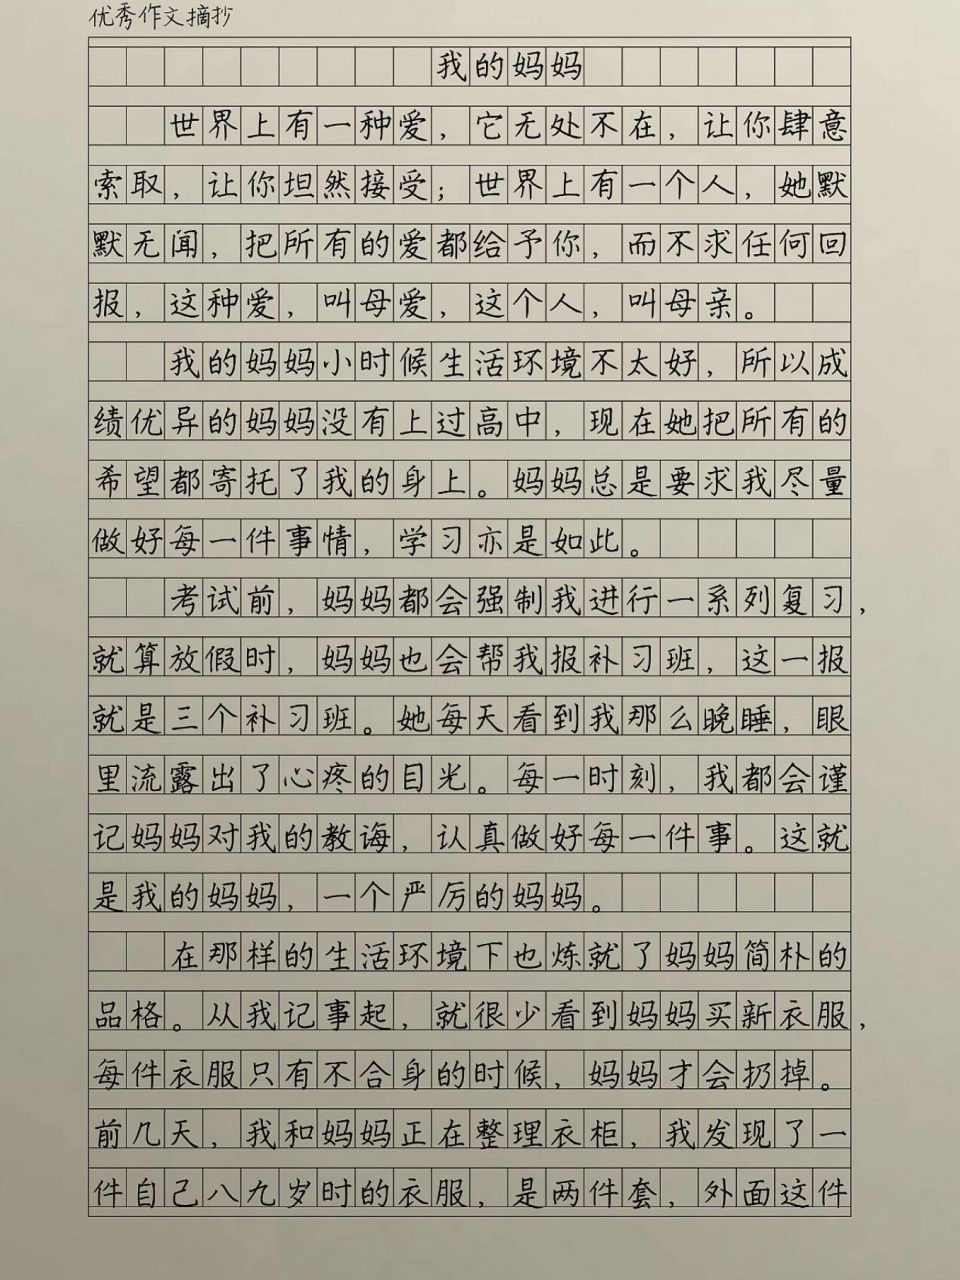 优秀作文摘抄
我的妈妈
世界上有一种爱，它无处不在，让你肆意
索取，让你坦然接受；世界上有一个人，她默
默无闻，把所有的爱都给予你，而不求任何回
报，这种爱，叫母爱，这个人，叫母亲。
我的妈妈小时候生活环境不太好，所以成
绩优异的妈妈没有上过高中，现在她把所有的
希望都寄托了我的身上。妈妈总是要求我尽量
做好每一件事情，学习亦是如此。
考试前，妈妈都会强制我进行一系列复习，
就算放假时，妈妈也会帮我报补习班，这一报
就是三个补习班。她每天看到我那么晚睡，眼
里流露出了心疼的目光。每一时刻，我都会谨
记妈妈对我的教诲，认真做好每一件事。这就
是我的妈妈，一个严厉的妈妈。
在那样的生活环境下也炼就了妈妈简朴的
品格。从我记事起，就很少看到妈妈买新衣服，
每件衣服只有不合身的时候，妈妈才会扔掉。
前几天，我和妈妈正在整理衣柜，我发现了一
件自己八九岁时的衣服，是两件套，外面这件